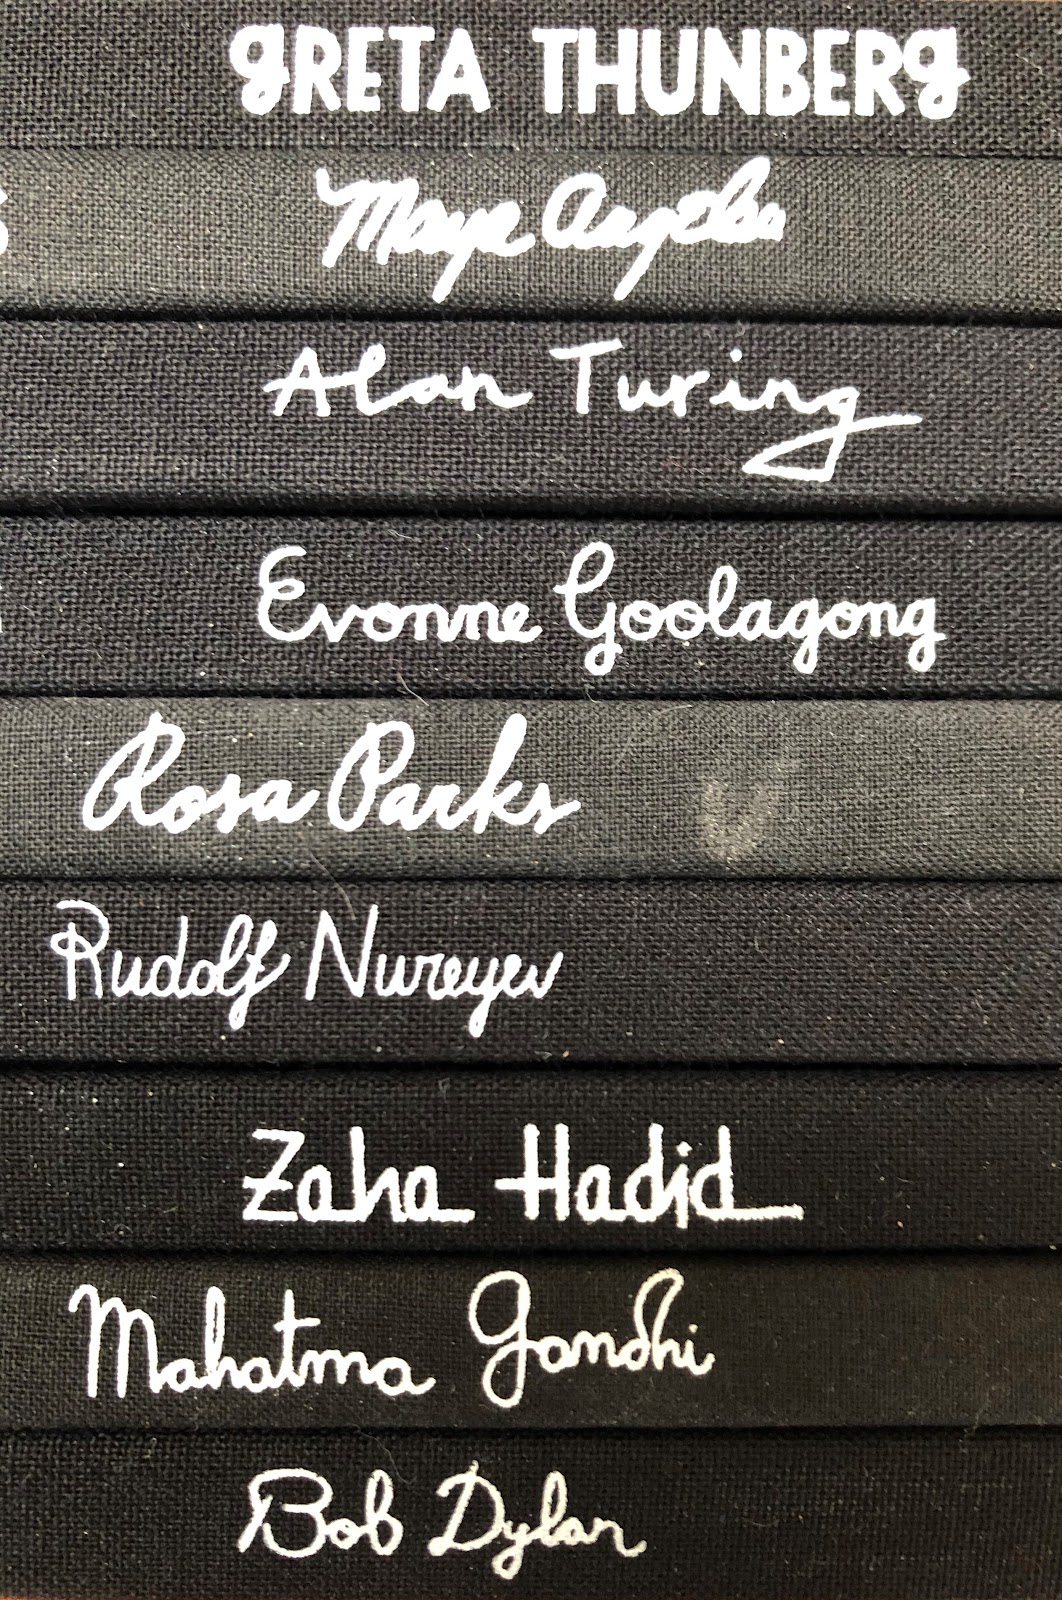 gRETA THUNBERg
Maya Angelou
Alan Turing
Evonne Goolagong
Rosa Parks
Rudolf Nureyev
Zaha Hadid
Mahatma Gandhi
Bob Dylan